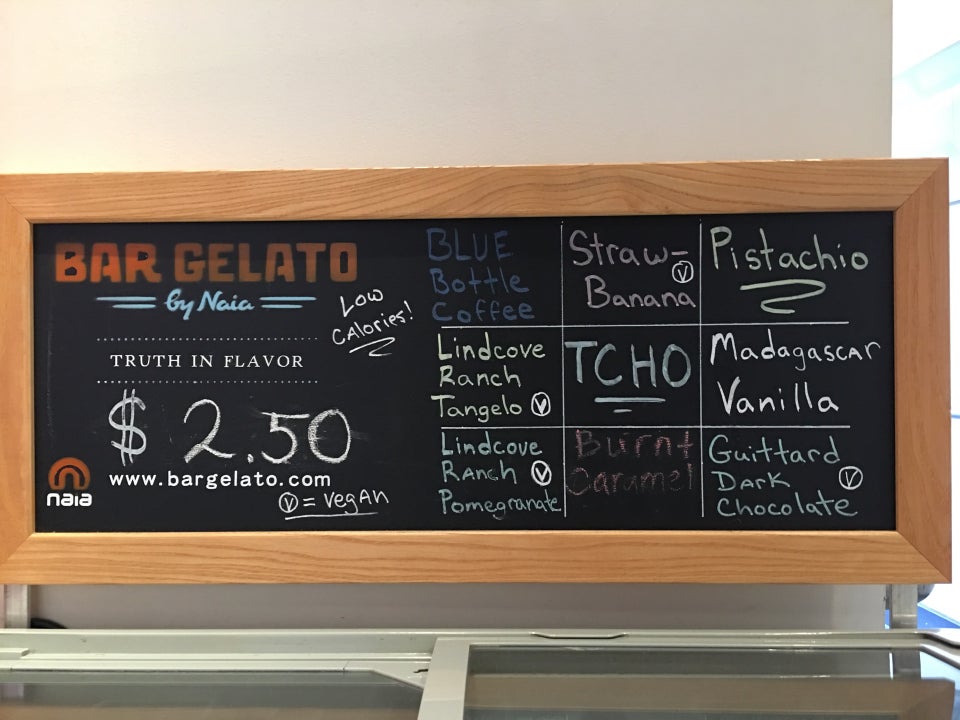 BAR GELATO
by Naia
Low
CAlories!
TRUTH IN FLAVOR
$ 2.50
www.bargelato.com
naia
V = VEgAN
BLUE
Bottle
Coffee
Straw-
Banana V
Pistachio
Lindcove
Ranch
Tangelo V
TCHO
Madagascar
Vanilla
Lindcove
RANCH V
Pomegranate
Burnt
Caramel
Guittard
DARK V
Chocolate